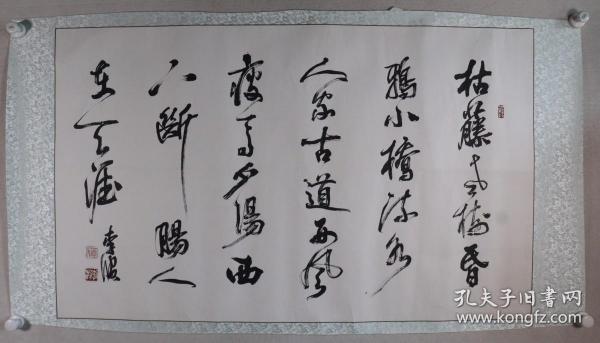 枯藤老树昏
鴉小橋流水
人家古道西風
瘦马夕陽西
下斷腸人
在天涯
李波
孔夫子旧书网
www.kongfz.com